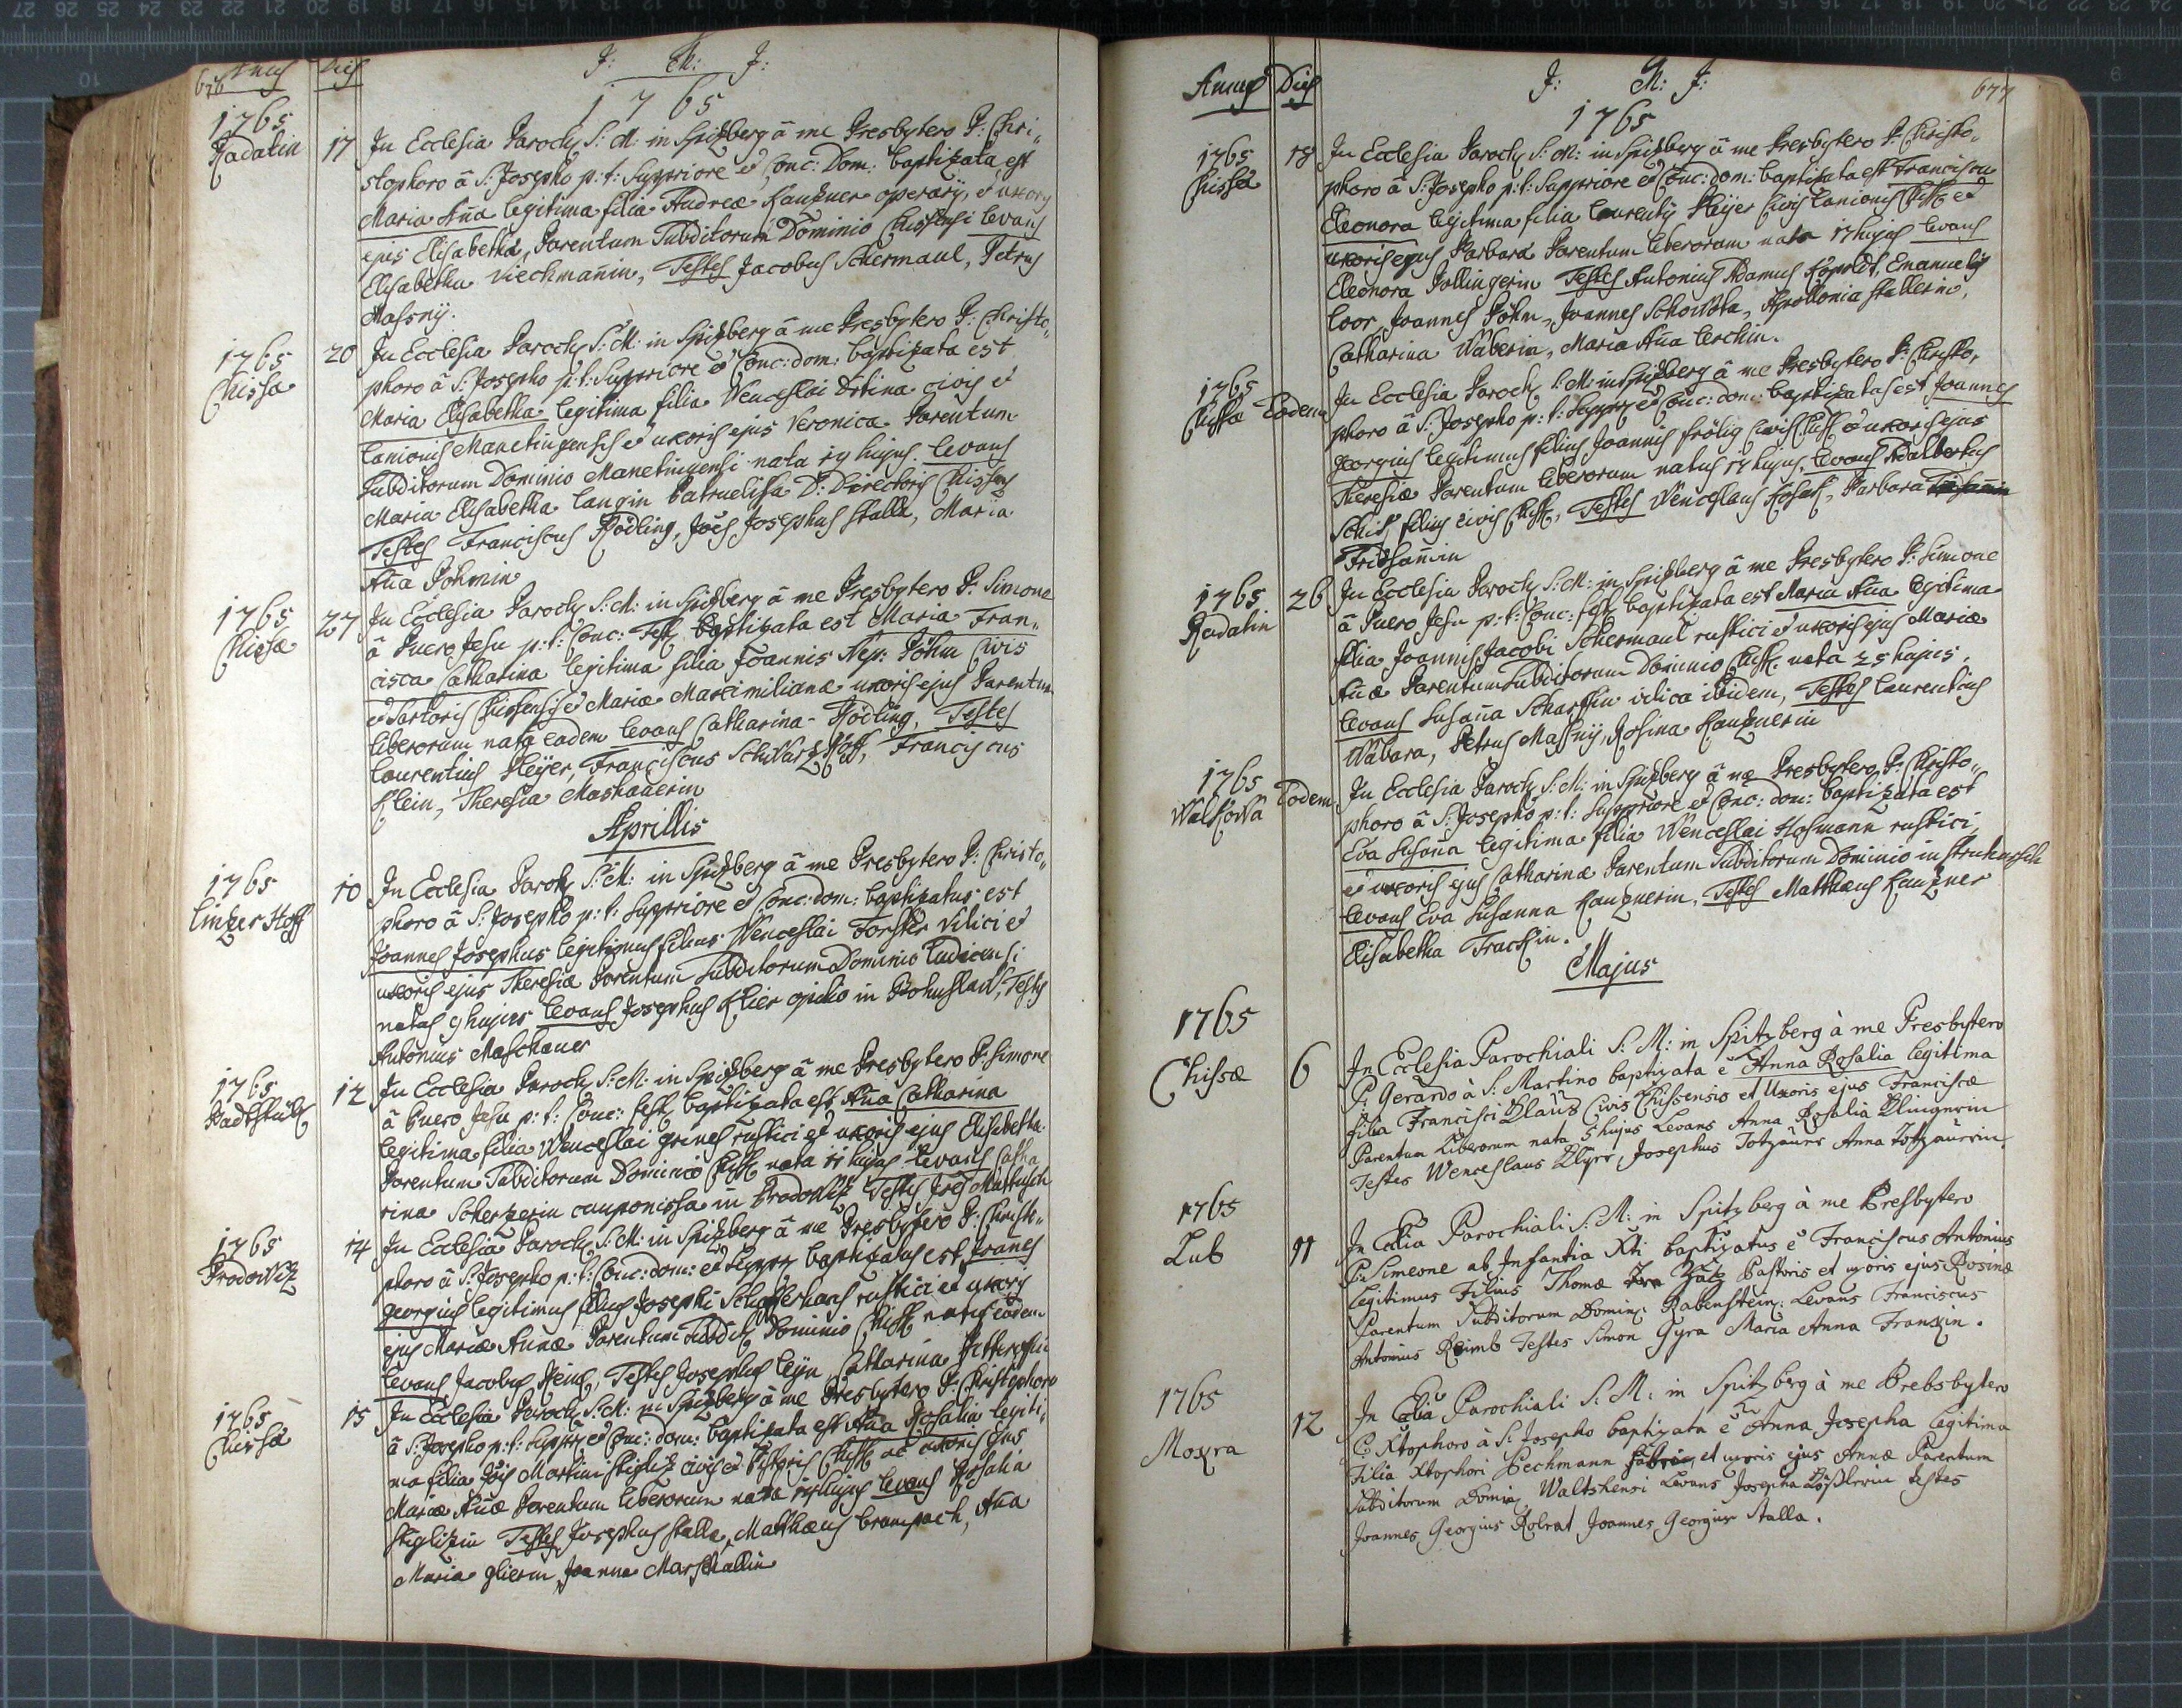 676
Annus Dies
J: M: J:
1765
1765
Radatin
17
In Ecclesia Paroch S: M: in Spitzberg â me Presbytero P: Chri„
stophoro â S: Josepho p: t: Suppriore et Conc: Dom: baptizata est
Maria Aña legitima filia Andreæ Kautzner operarij, et uxoris
ejus Elisabethæ, Parentum Subditorum Dominio Chissensi levans
Elisabetha Viechmañin, Testes Jacobus Schermaul, Petrus
Massnij.
1765
Chissæ
20
In Ecclesia Paroch S: M: in Spitzberg â me Presbytero P: Christo„
phoro â S: Josepho p: t: Suppriore et Conc: dom: baptizata est
Maria Elisabetha legitima filia Wenceslai Drtina civis et
Lanionis Manetingensis et uxoris ejus Veronica Parentum
Subditorum Dominio Manetingensi nata 19 hujus. levans
Maria Elisabetha Langin Patruelissa D: Directoris Chissens
Testes Franciscus Rödling, Jões Josephus Stalla, Maria
Aña Böhmin
1765
Chissæ
27
In Ecclesia Paroch S: M: in Spitzberg â me Presbytero P: Simone
â Puero Jesu p: t: Conc: Fest baptizata est Maria Fran„
cisca Catharina legitima filia Joannis Nep: Böhm Civis
et Sartoris Chissensis et Mariæ Maximilianæ uxoris ejus Parentum
liberorum nata eadem levans Catharina Rödling, Testes
Laurentius Heÿer, Franciscus Schwartzkopff, Franciscus
Klein, Theresia Maskauerin
Aprillis
1765
Linzer Hoff
10
In Ecclesia Paroch S: M: in Spitzberg â me Presbytero P: Christo„
phoro â S: Josepho p: t: Suppriore et Conc: dom: baptizatus est
Joannes Josephus legitimus filius Wenceslai Forster Vilici et
uxoris ejus Theresiæ Parentum Subditorum Dominio Ludicensi
natus 9 hujus levans Josephus Klier opilio in Bohuslaw, Testis
Antonius Maschauer
1765
12
In Ecclesia Paroch S: M: in Spitzberg â me Presbytero P: Simone
â Puero Jesu p: t: Conc: fest baptizata est Aña Catharina
legitima filia Wenceslai Grines rustici et uxoris ejus Elisabetha
Parentum Subditorum Dominio Chiss: nata 11 hujus levans Catha
rina Scherzerin cauponissa in Prodowitz Testis Jões Mattusch
1765
Prodowitz
14
In Ecclesia Paroch S: M: in Spitzberg â me Presbytero P: Christo„
phoro â S: Josepho p: t: Conc: dom: et Suppr: baptizatus est Joanes
Georgius legitimus filius Josephi Schafferhans rustici et uxoris
ejus Mariæ Annæ Parentum Subdit Dominio Chiss: natus eadem
levans Jacobus Heins, Testes Josephus Leÿn, Catharina
1765
Chissæ
15
In Ecclesia Paroch S: M: in Spitzberg â me Presbytero P: Christophoro
â S: Josepho p: t: Suppr: et Conc: dom: baptizata est Aña Rosalia legiti„
ma filia Jõis Martini Stiglitz civis et Pistoris Chiss: ac uxoris ejus
Mariæ Añæ Parentum liberorum nata hujus levans Rosalia
Stiglitzin Testes Josephus Stalla, Matthæus Crampach, Aña
Maria Glierin, Joanna Marschallin
677
Annus Dies
J: M: J:
1765
1765
Chissæ
18
In Ecclesia Paroch S: M: in Spitzberg â me Presbytero P: Christo„
phoro â S: Josepho p: t: Suppriore et Conc: dom: baptizata est Francisca
Eleonora legitima filia Laurentij Heÿer Civis Lanionis Chiss: et
uxoris ejus Barbara Parentum liberorum nata 17 hujus levans
Eleonora Pollingerin Testes Antonius Adamus Kopoldt, Emanuelis
Loor, Joannes Böhm, Joannes Schowska, Apollonia Stallerin,
Catharina Waberin, Maria Aña Lerchin.
1765
Chissæ
Eodem
In Ecclesia Paroch S: M: in Spitzberg â me Presbytero P: Christo„
phoro â S: Josepho p: t: Suppr: et Conc: dom: baptizatus est Joannes
Georgius legitimus filius Joannis Frölig Civis Chiss: et uxoris ejus
Theresiæ Parentum liberorum natus 18 hujus, levans Adalbertus
Schis, filius civis Chiss:, Testes Wenceslaus Kosak, Barbara
Fridsañin
1765
Radatin
26
In Ecclesia Paroch S: M: in Spitzberg â me Presbytero P: Simone
â Puero Jesu p: t: Conc: fest baptizata est Maria Aña legitima
filia Joannis Jacobi Schermaul rustici et uxoris ejus Mariæ
Añæ Parentum Subditorum Dominio Chiss: nata 25 hujus.
levans Susaña Scharffin vilica ibidem, Testes Laurentius
Wabara, Petrus Massnij, Rosina Kautznerin
1765
Walkowa
Eodem
In Ecclesia Paroch S: M: in Spitzberg â me Presbytero P: Christo„
phoro â S: Josepho p: t: Suppriore et Conc: dom: baptizata est
Eva Susaña legitima filia Wenceslai Hofmann rustici
et uxoris ejus Catharinæ Parentum Subditorum Dominio in
levans Eva Susanna Kautznerin, Testes Matthæus Kautzner
Elisabetha Trackin.
Majus
1765
Chissæ
6
In Ecclesia Parochiali S: M: in Spitzberg à me Presbytero
P: Gerardo à S: Martino baptizata ẽ Anna Rosalia legitima
filia Francisci Blauz Civis Chissensis et Uxoris ejus Franciscæ
Parentum Liberorum nata 5 hujus Levans Anna Rosalia Klingerin
Testes Wenceslaus Klyer, Josephus Totzauer Anna Totzauerin.
1765
Lub
11
In Eccliâ Parochiali S: M: in Spitzberg à me Presbytero
P: Simeone ab Infantia Xti baptizatus ẽ Franciscus Antonius
legitimus Filius Thomæ Zatz Pastoris et uxoris ejus Rosinæ
Parentum Subditorum Domini: Rabenstein: Levans Franciscus
Antonius Reimb Testes Simon Gyra Maria Anna Franzin.
1765
Moxra
12
In Eccliâ Parochiali S: M: in Spitzberg à me Prebsbytero
P: Xtophoro à S: Josepho baptizata ẽ Anna Josepha legitima
Filia Xtophori Pechmann Fabri et uxoris ejus Annæ Parentum
Subditorum Domini: Waltshensi Levans Josepha testes
Joannes Georgius Kolrat Joannes Georgius Stalla.